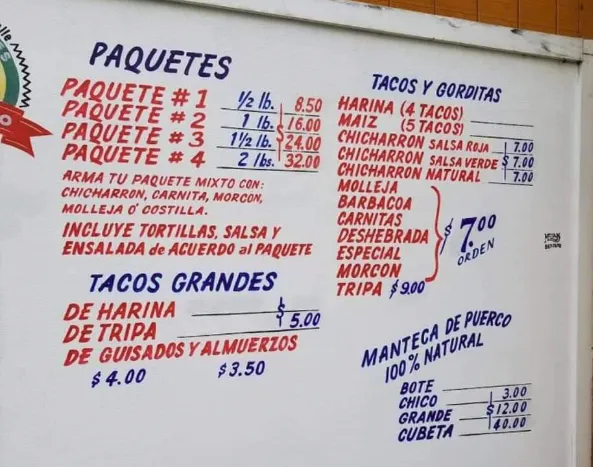 PAQUETES
PAQUETE # 1 ½ lb. 8.50
PAQUETE # 2 1 lb. $16.00
PAQUETE # 3 1½ lb. $24.00
PAQUETE # 4 2 lbs. 32.00
ARMA TU PAQUETE MIXTO CON:
CHICHARRON, CARNITA, MORCON,
MOLLEJA Ó COSTILLA.
INCLUYE TORTILLAS, SALSA Y
ENSALADA de ACUERDO al PAQUETE
TACOS GRANDES
DE HARINA $
DE TRIPA 5.00
DE GUISADOS Y ALMUERZOS
$4.00 $3.50
TACOS Y GORDITAS
HARINA (4 TACOS)
MAIZ (5 TACOS)
CHICHARRON SALSA ROJA 7.00
CHICHARRON SALSA VERDE $ 7.00
CHICHARRON NATURAL 7.00
MOLLEJA
BARBACOA
CARNITAS
DESHEBRADA
ESPECIAL
MORCON
$7.00
ORDEN
TRIPA $9.00
MANTECA DE PUERCO
100% NATURAL
BOTE
CHICO 3.00
GRANDE $12.00
CUBETA 40.00